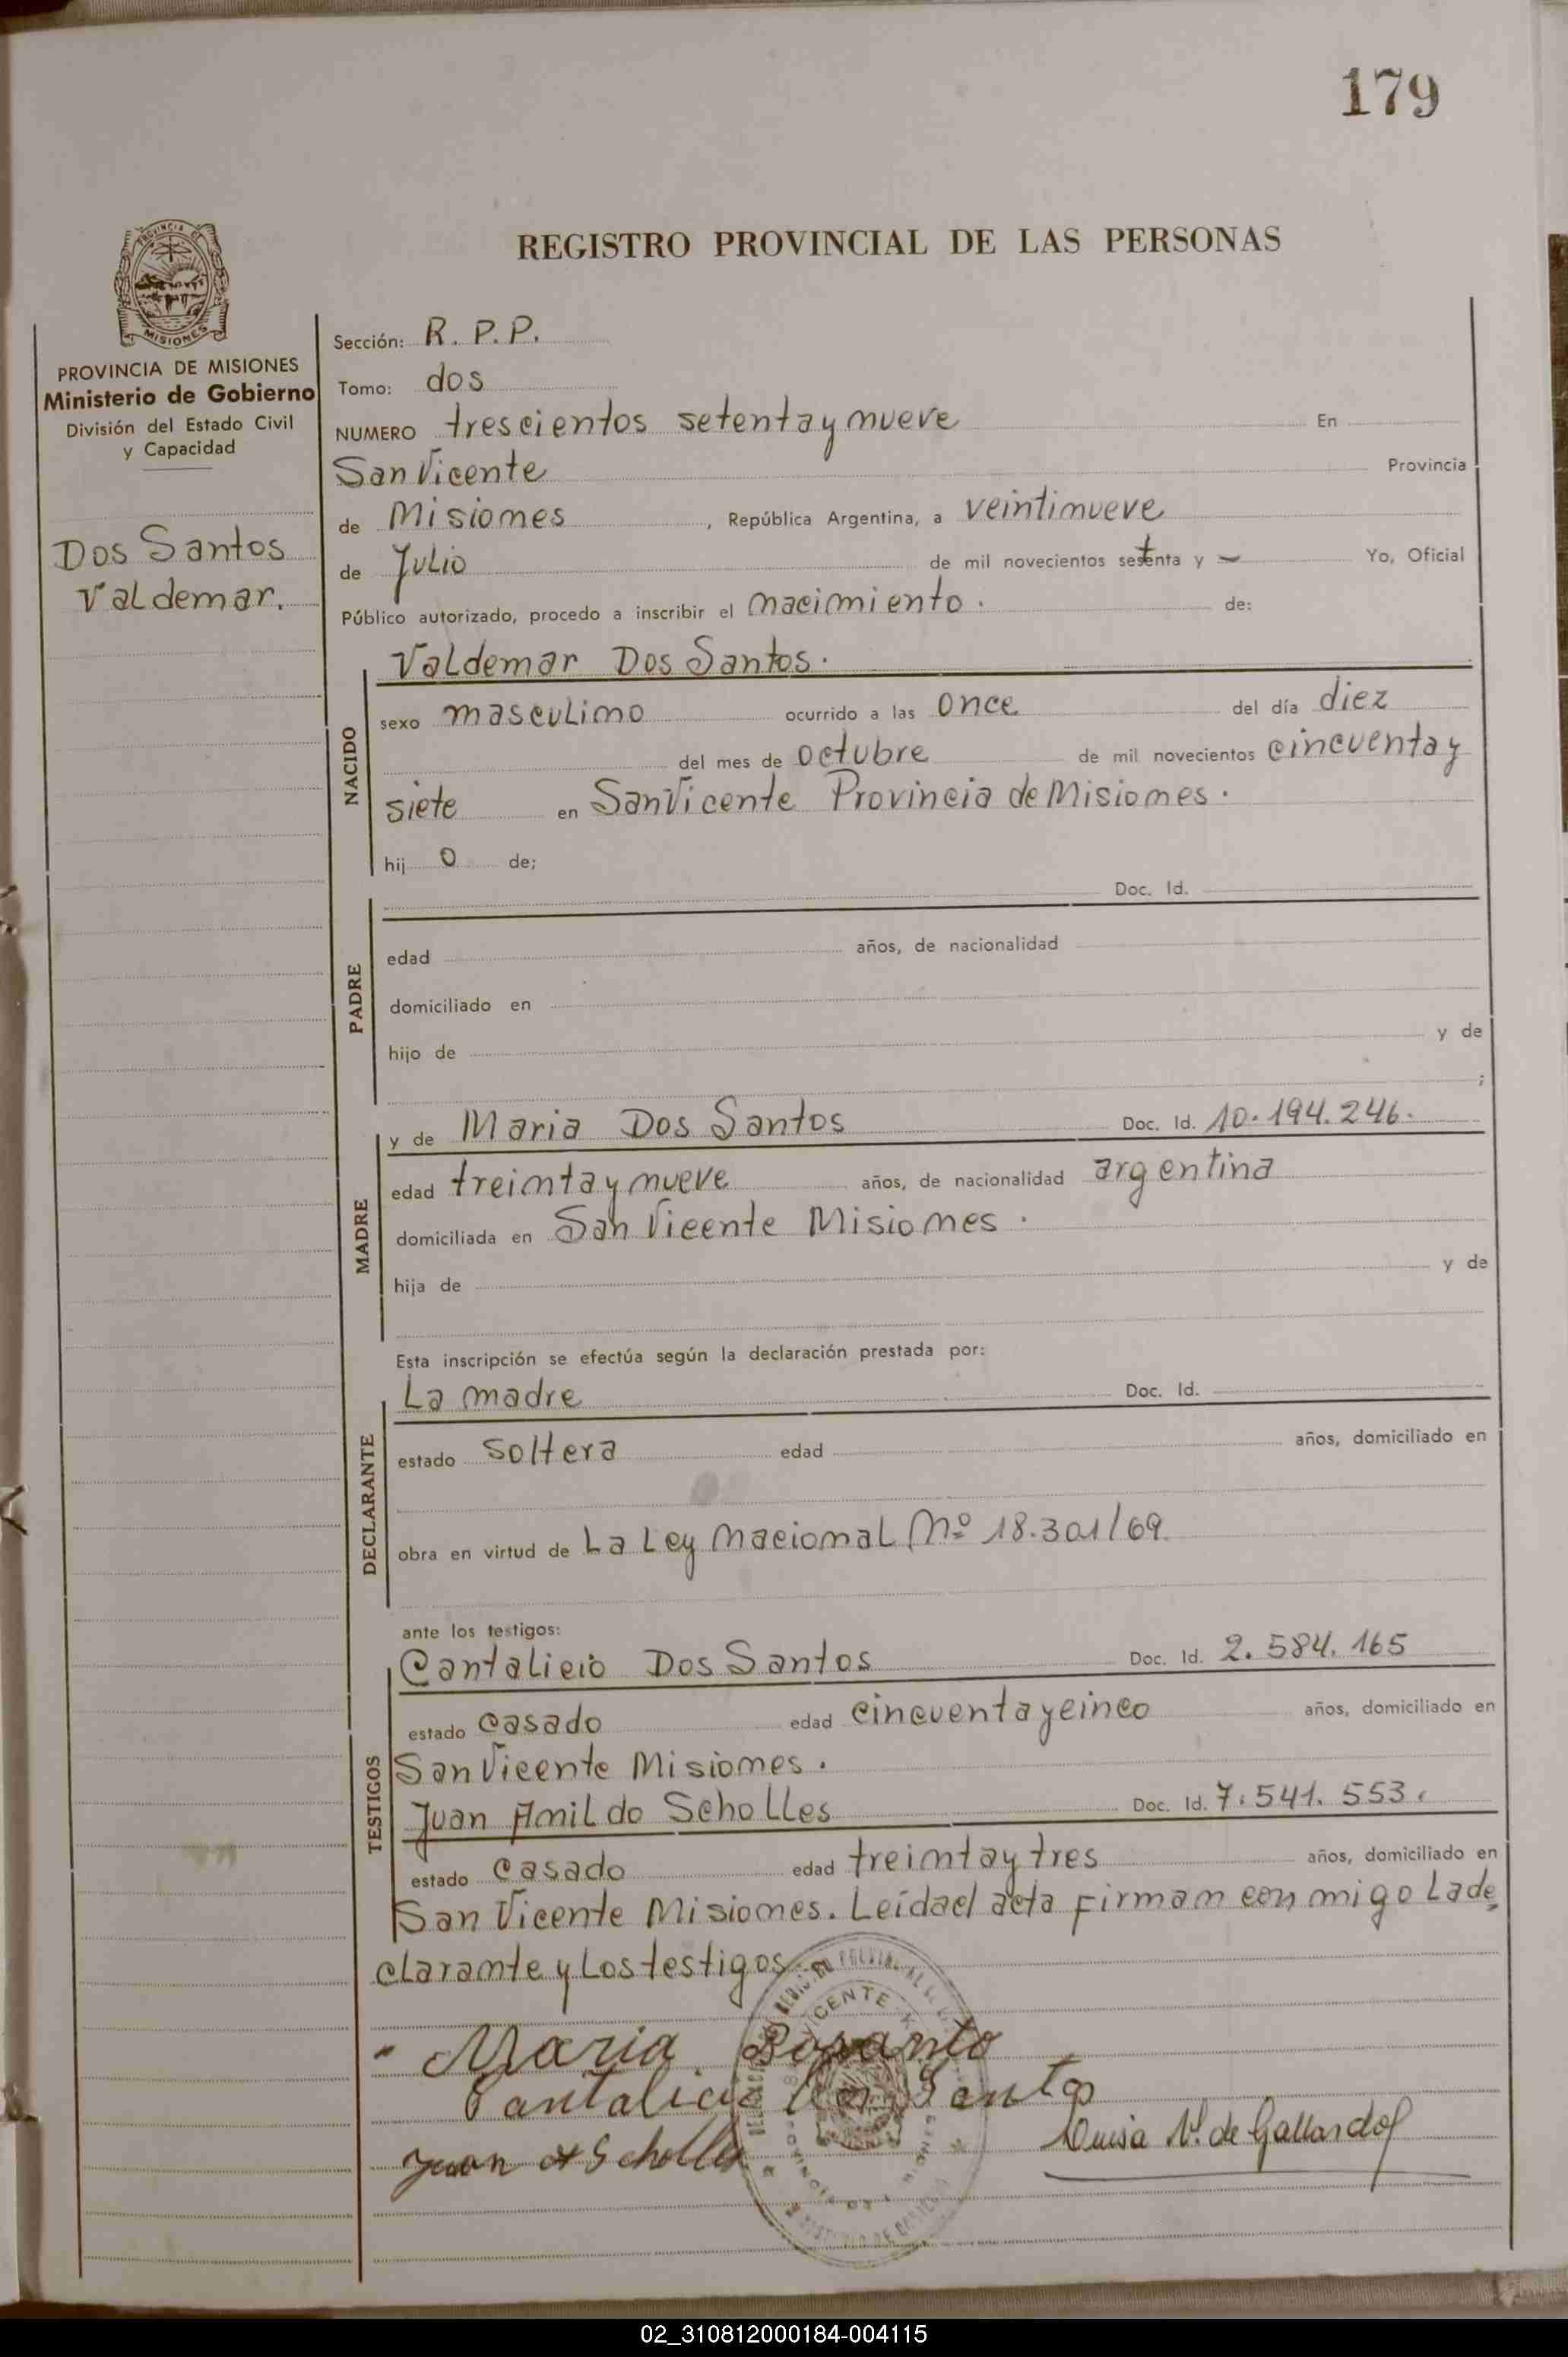 179
REGISTRO PROVINCIAL DE LAS PERSONAS
PROVINCIA DE
MISIONES
PROVINCIA DE MISIONES
Ministerio de Gobierno
División del Estado Civil
y Capacidad
Dos Santos
Valdemar.
Sección: R. P. P.
Tomo: dos
NUMERO trescientos setenta y nueve En
San Vicente Provincia
de Misiones, República Argentina, a veintinueve
de Julio de mil novecientos setenta y — Yo, Oficial
Público autorizado, procedo a inscribir el nacimiento. de:
Valdemar Dos Santos.
NACIDO
sexo masculino ocurrido a las once del día diez
del mes de octubre de mil novecientos cincuenta y
siete en San Vicente Provincia de Misiones.
hij o de;
Doc. Id.
PADRE
edad años, de nacionalidad
domiciliado en
hijo de y de
;
y de Maria Dos Santos Doc. Id. 10.194.246.
MADRE
edad treinta y nueve años, de nacionalidad argentina
domiciliada en San Vicente Misiones.
hija de y de
Esta inscripción se efectúa según la declaración prestada por:
La madre Doc. Id.
DECLARANTE
estado soltera edad años, domiciliado en
obra en virtud de La Ley Nacional Nº 18.301/69.
ante los testigos:
Cantalicio Dos Santos Doc. Id. 2.584.165
TESTIGOS
estado casado edad cincuenta y cinco años, domiciliado en
San Vicente Misiones.
Juan Amildo Scholles Doc. Id. 7.541.553.
estado casado edad treinta y tres años, domiciliado en
San Vicente Misiones. Leída el acta firman con migo la de
clarante y los testigos
VICENTE
Maria Dosanto
Cantalicio Dos Santos
Juan A Scholles
Luisa V. de Gallardo
02_310812000184-004115